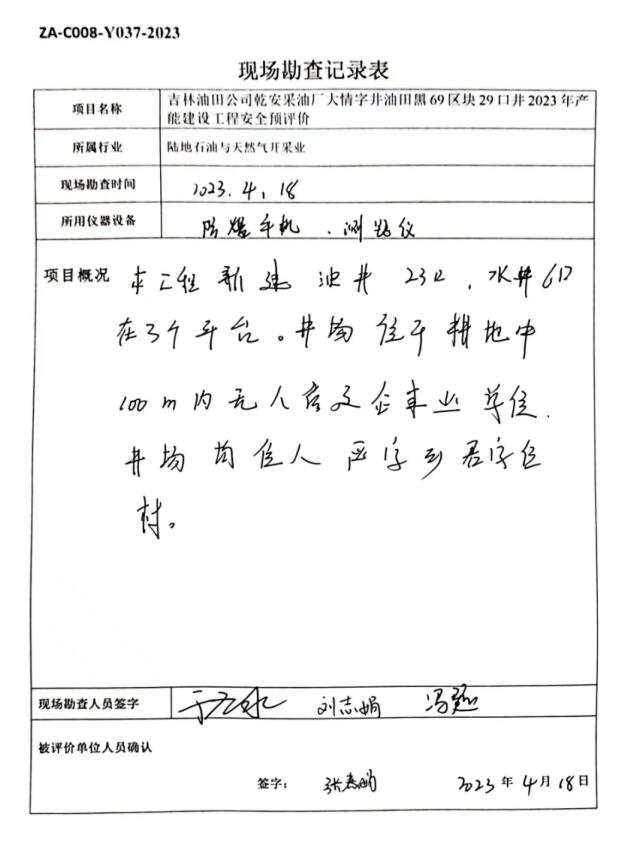 ZA-C008-Y037-2023
现场勘查记录表
项目名称 吉林油田公司乾安采油厂大情字井油田黑69区块29口井2023年产
能建设工程安全预评价
所属行业 陆地石油与天然气开采业
现场勘查时间 2023.4.18
所用仪器设备 防爆手机、测距仪
项目概况 本工程新建油井23口，水井6口
在3个平台。井场位于耕地中
100m内无人居及企事业单位.
井场
村。
现场勘查人员签字 刘志娟
被评价单位人员确认
签字： 2023年4月18日